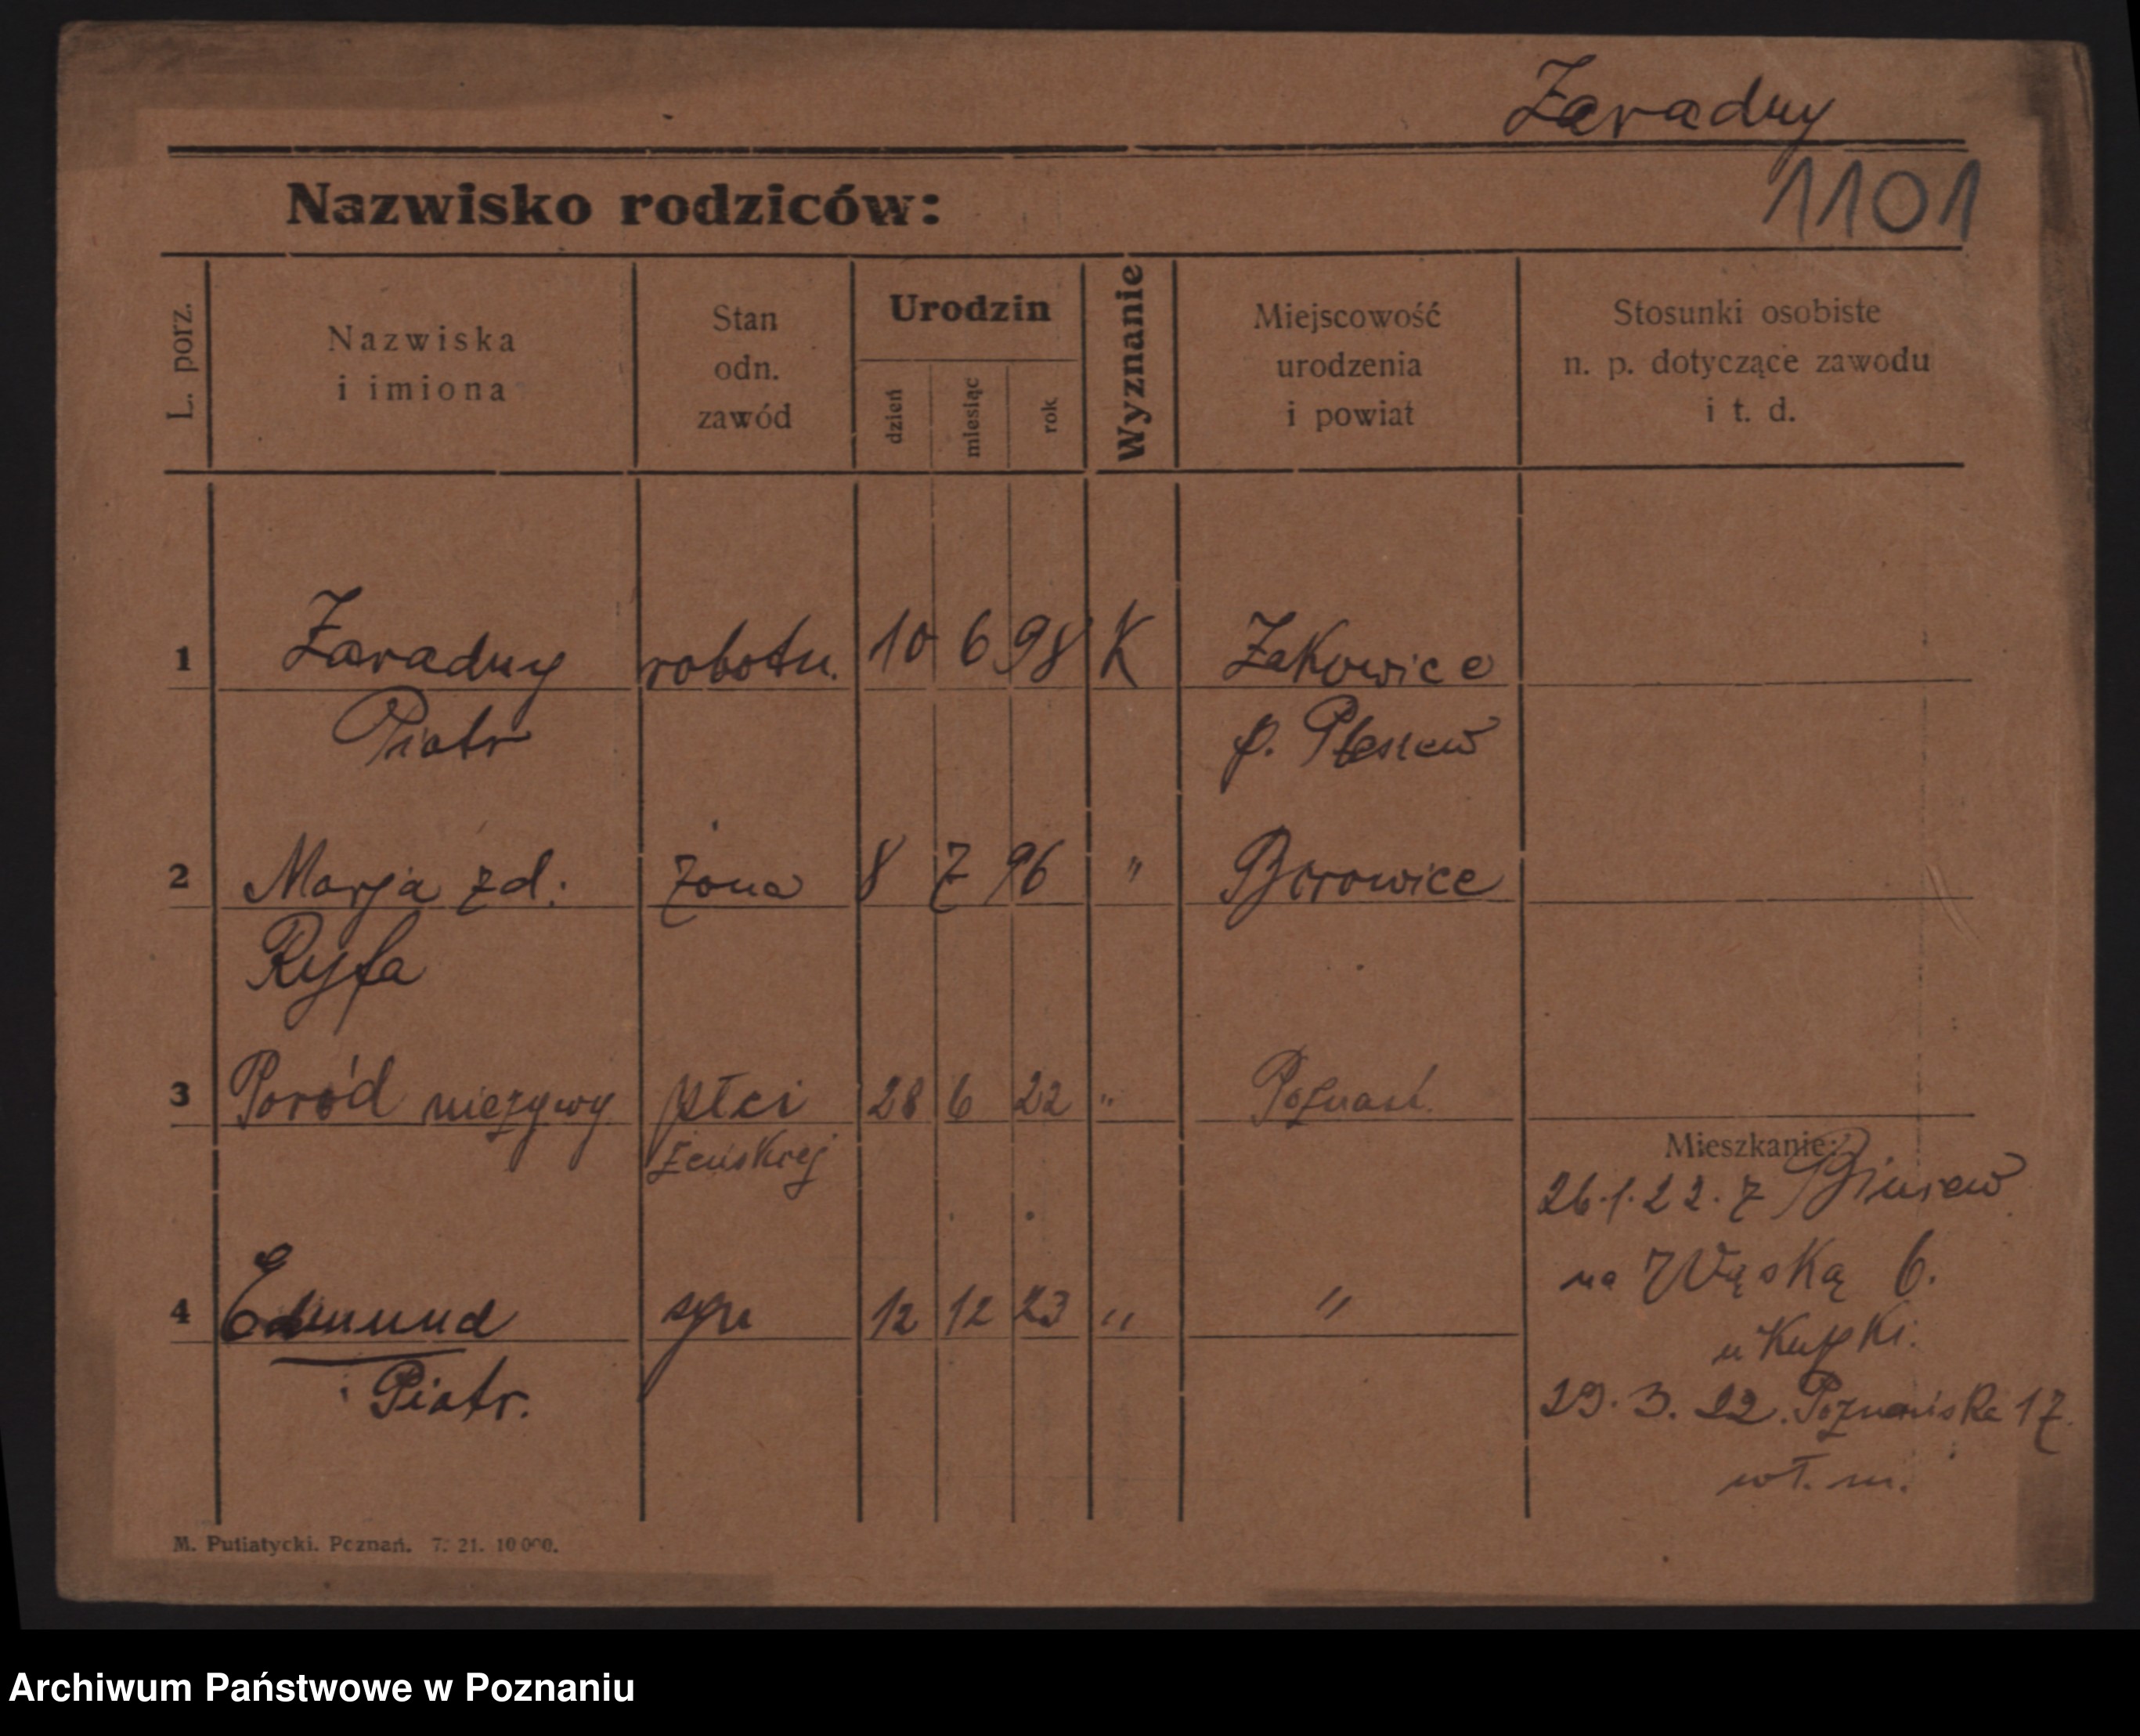 Zaradny
1101
Nazwisko rodziców:
L. porz.
Nazwiska
i imiona
Stan
odn.
zawód
Urodzin
dzień
miesiąc
rok
Wyznanie
Miejscowość
urodzenia
i powiat
Stosunki osobiste
n. p. dotyczące zawodu
i t. d.
1 Zaradny robotn. 10 6 98 K Żakowice
Piotr p. Pleszew
2 Marja zd. żona 8 7 96 " Borowice
Ryfa
3 Poród nieżywy płci 28 6 22 " Poznań
żeńskiej
Mieszkanie:
26.1.22. z
4 Edmund syn 12 12 23 " "
Piotr.
na Wąską 6.
u Kupki.
29. 3. 22. Poznańska 17.
wł. m.
M. Putiatycki. Poznań. 7. 21. 10 000.
Archiwum Państwowe w Poznaniu